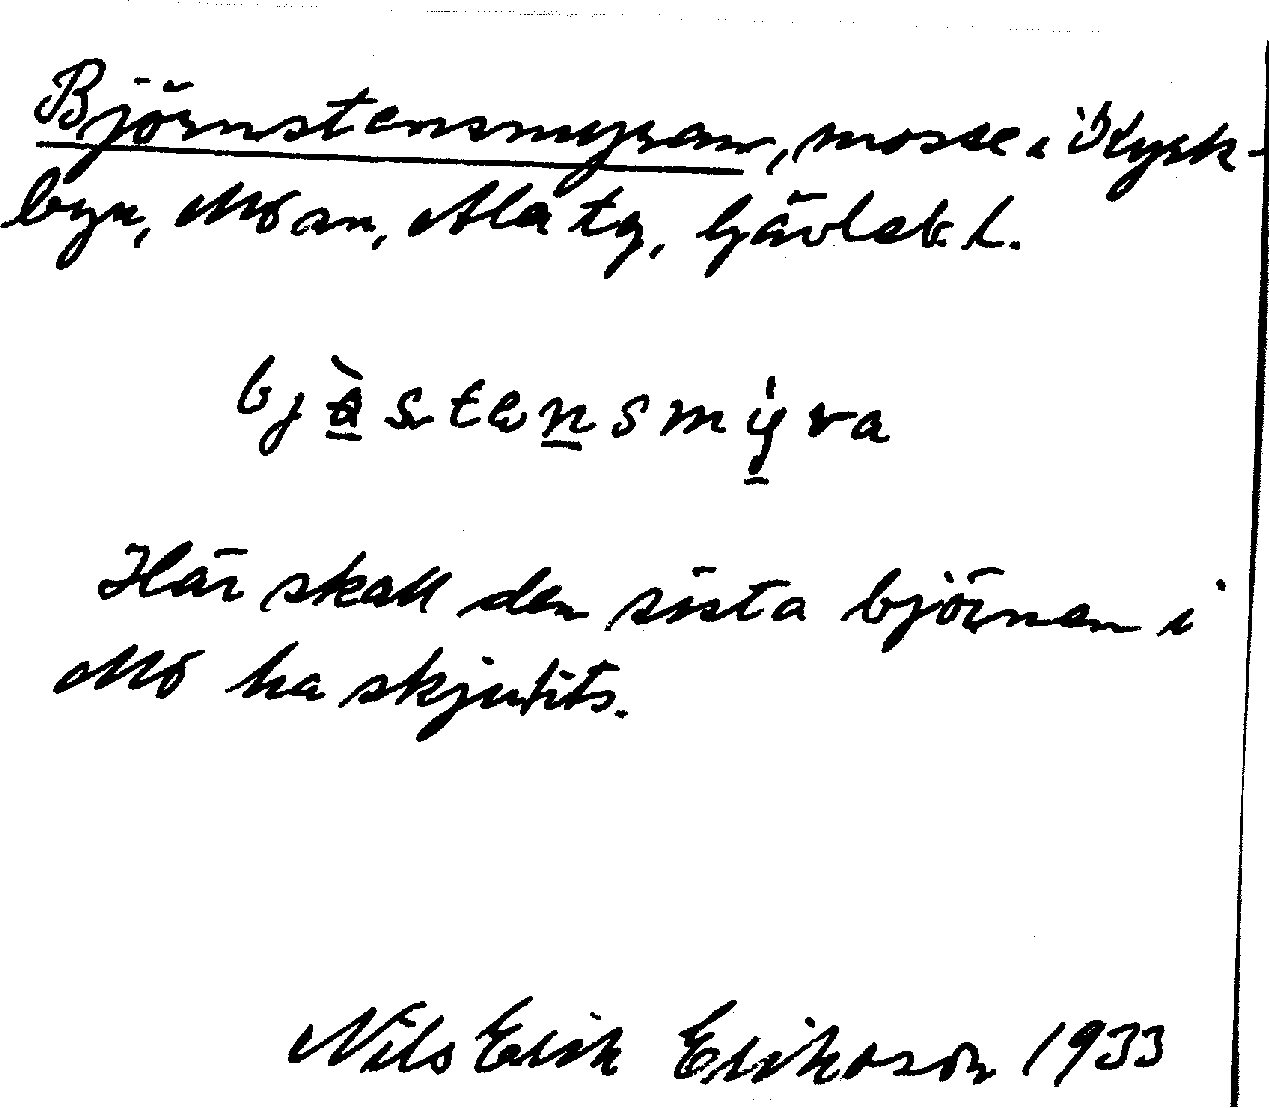 Björnstensmyran, mosse i Kyrk-
byn, Mo sn, Ala tg, Gävleb. l.
bjàstensmy̍ra
Här skall den sista björnen i
Mo ha skjutits.
Nils Erik Erikson 1933